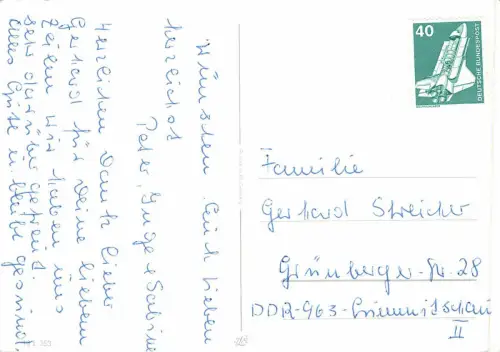 Wünschen Euch Lieben
herzlichst
Peter, Inge + Sabine
Herzlichen Dank lieber
Gerhard für Deine lieben
Zeilen. Wir haben uns
sehr darüber gefreut.
Alles Gute u. bleibt gesund.
40
DEUTSCHE BUNDESPOST
Familie
Gerhard Streicher
Grünberger-Str. 28
DDR-963-Crimmitschau
II